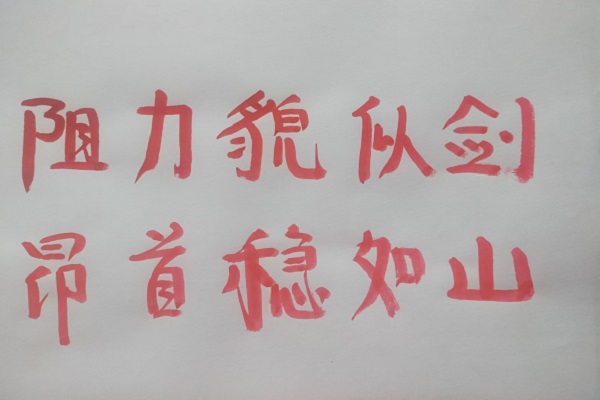 阻力貌似剑
昂首稳如山